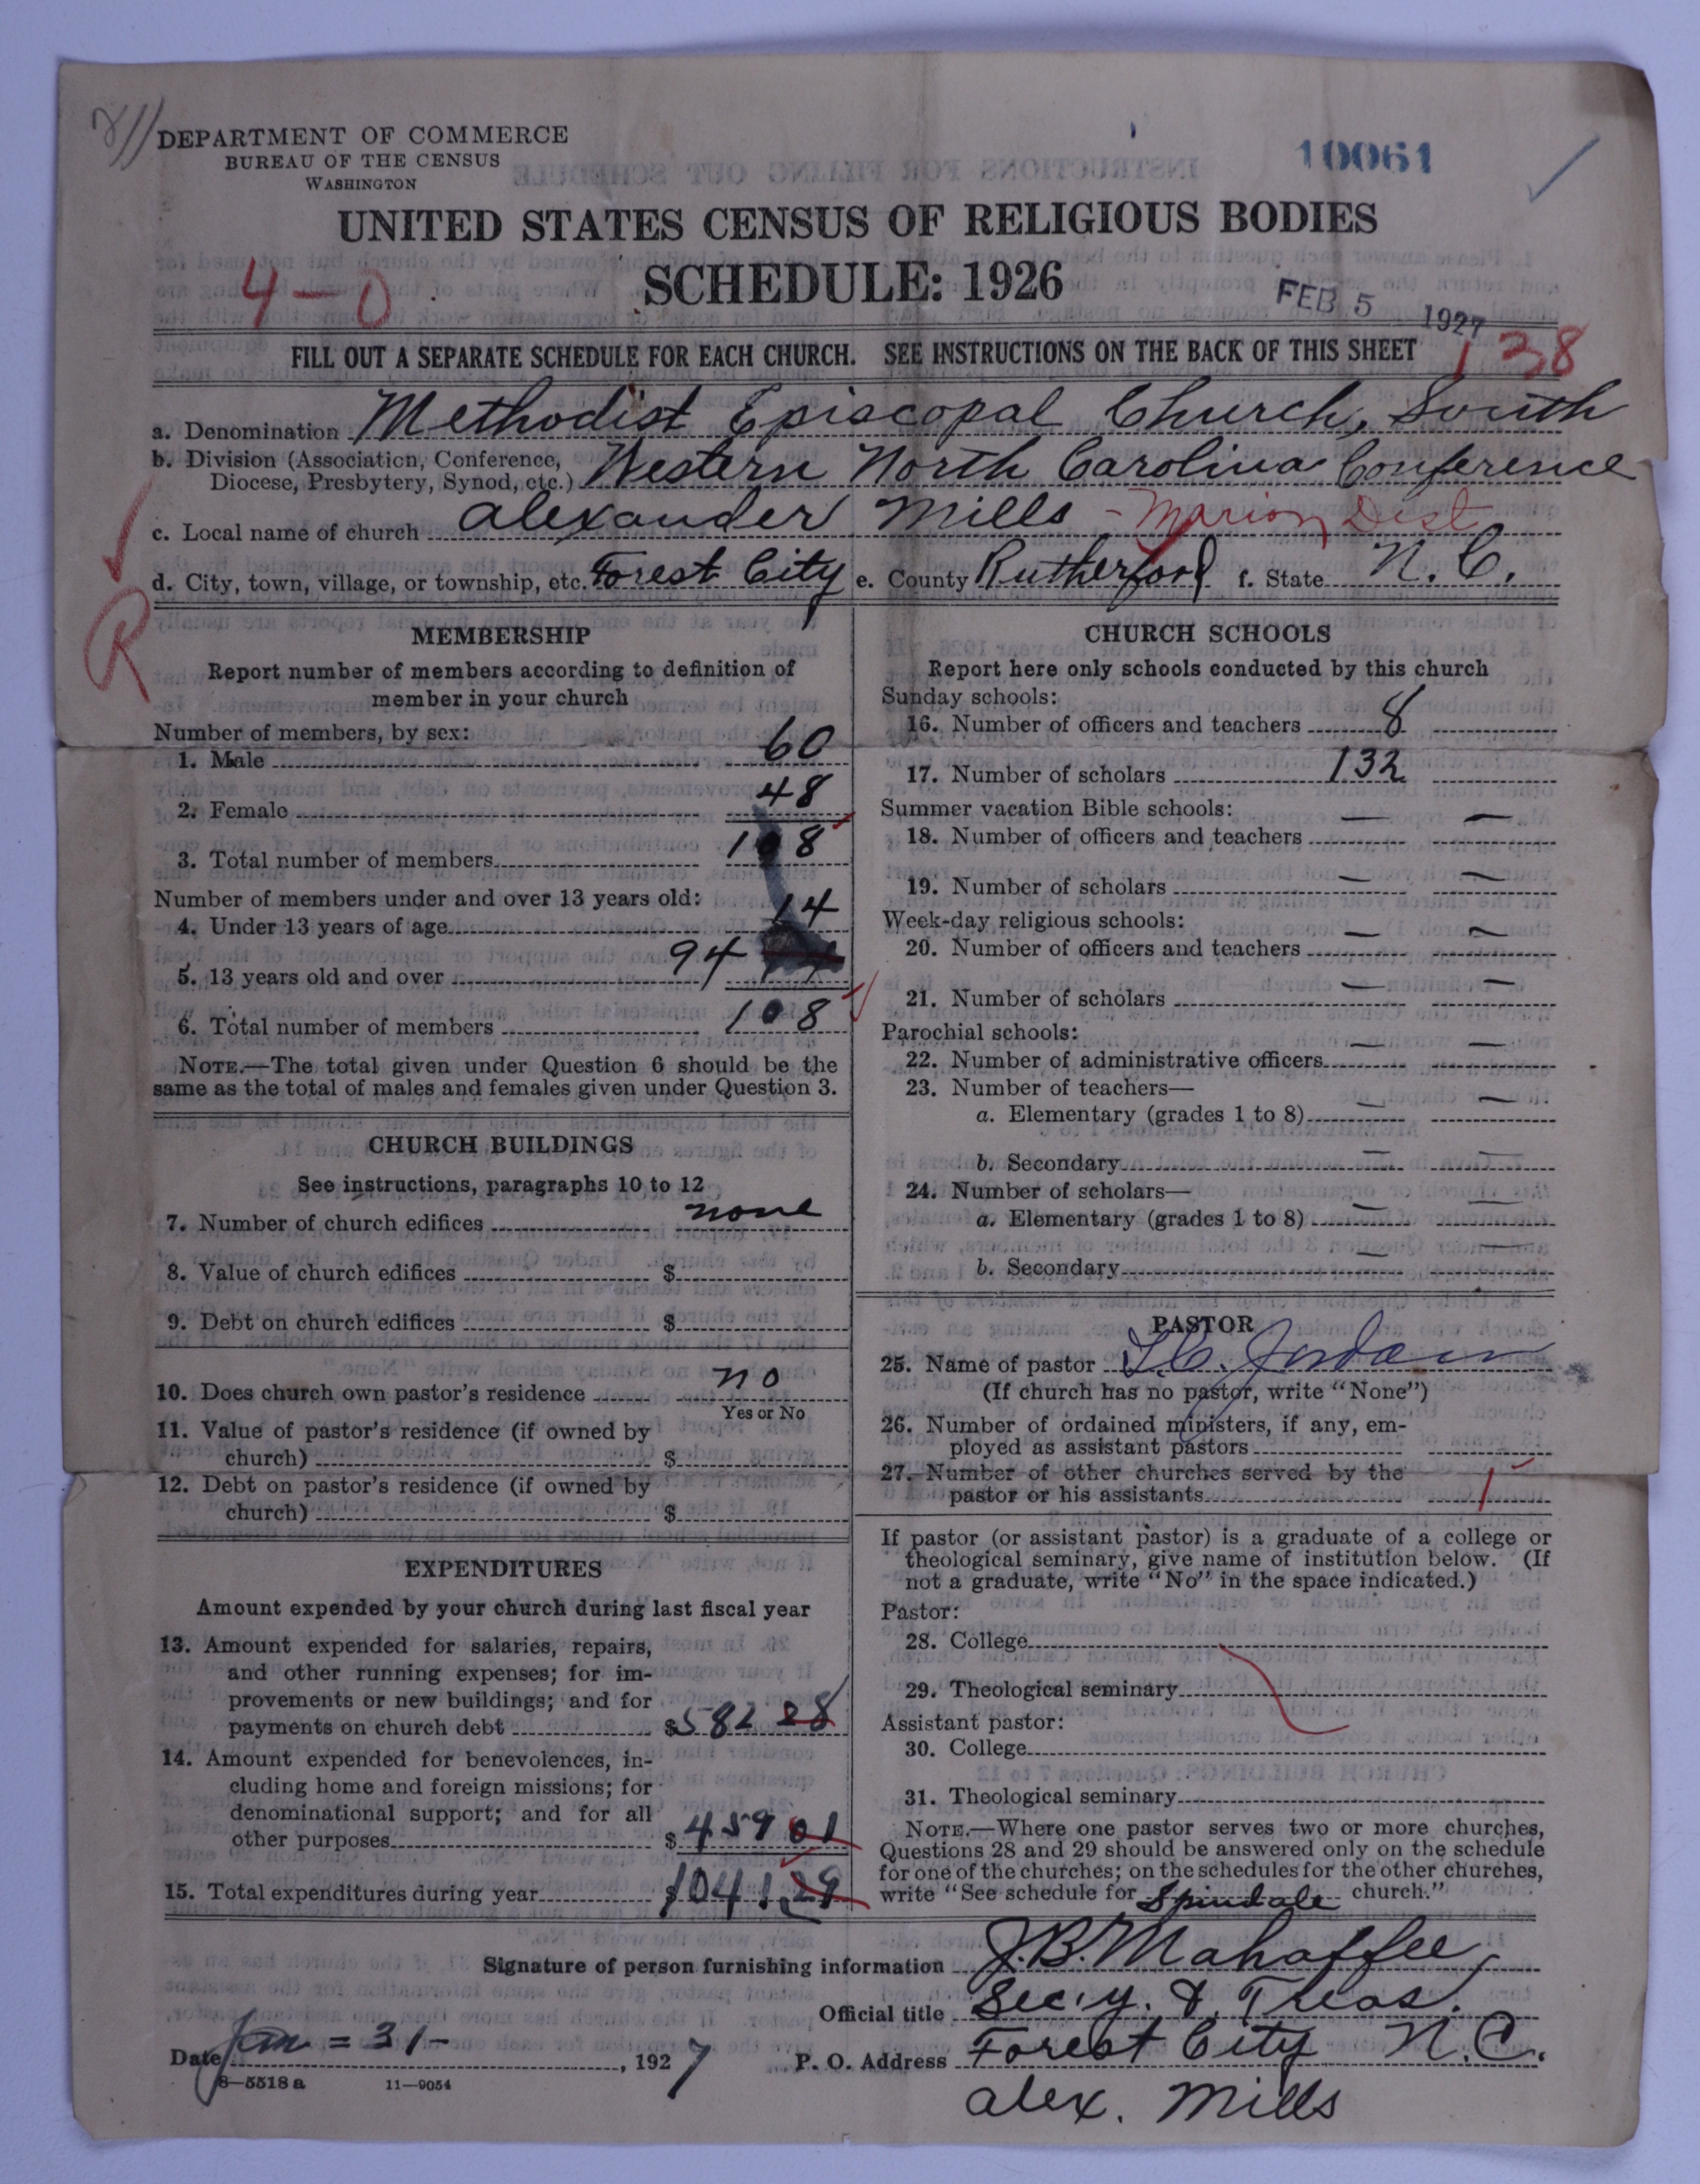 DEPARTMENT OF COMMERCE
BUREAU OF THE CENSUS
WASHINGTON
10061
UNITED STATES CENSUS OF RELIGIOUS BODIES
SCHEDULE: 1926
4-0
FEB 5 1927
138
FILL OUT A SEPARATE SCHEDULE FOR EACH CHURCH. SEE INSTRUCTIONS ON THE BACK OF THIS SHEET
a. Denomination Methodist Episcopal Church, South
b. Division (Association, Conference, Diocese, Presbytery, Synod, etc.) Western North Carolina Conference
c. Local name of church Alexander Mills - Marion Dist
d. City, town, village, or township, etc. Forest City e. County Rutherford f. State N. C.
R
MEMBERSHIP
Report number of members according to definition of
member in your church
Number of members, by sex:
1. Male 60
2. Female 48
3. Total number of members 108
Number of members under and over 13 years old:
4. Under 13 years of age 14
5. 13 years old and over 94
6. Total number of members 108
NOTE.—The total given under Question 6 should be the
same as the total of males and females given under Question 3.
CHURCH BUILDINGS
See instructions, paragraphs 10 to 12
7. Number of church edifices none
8. Value of church edifices $
9. Debt on church edifices $
10. Does church own pastor's residence no
Yes or No
11. Value of pastor's residence (if owned by
church) $
12. Debt on pastor's residence (if owned by
church) $
EXPENDITURES
Amount expended by your church during last fiscal year
13. Amount expended for salaries, repairs,
and other running expenses; for im-
provements or new buildings; and for
payments on church debt $582 28
14. Amount expended for benevolences, in-
cluding home and foreign missions; for
denominational support; and for all
other purposes $459 01
15. Total expenditures during year $1041.29
CHURCH SCHOOLS
Report here only schools conducted by this church
Sunday schools:
16. Number of officers and teachers 8
17. Number of scholars 132
Summer vacation Bible schools:
18. Number of officers and teachers — —
19. Number of scholars — —
Week-day religious schools:
20. Number of officers and teachers — —
21. Number of scholars — —
Parochial schools:
22. Number of administrative officers — —
23. Number of teachers—
a. Elementary (grades 1 to 8) — —
b. Secondary — —
24. Number of scholars—
a. Elementary (grades 1 to 8) — —
b. Secondary — —
PASTOR
25. Name of pastor Jordan
(If church has no pastor, write "None")
26. Number of ordained ministers, if any, em-
ployed as assistant pastors
27. Number of other churches served by the
pastor or his assistants 1
If pastor (or assistant pastor) is a graduate of a college or
theological seminary, give name of institution below. (If
not a graduate, write "No" in the space indicated.)
Pastor:
28. College
29. Theological seminary
Assistant pastor:
30. College
31. Theological seminary
NOTE.—Where one pastor serves two or more churches,
Questions 28 and 29 should be answered only on the schedule
for one of the churches; on the schedules for the other churches,
write "See schedule for Spindale church."
Signature of person furnishing information J. B. Mahaffee,
Official title Sec'y. & Treas.
Date Jan = 31 - , 1927
P. O. Address Forest City N. C.
Alex. Mills
8—5518 a 11—9054